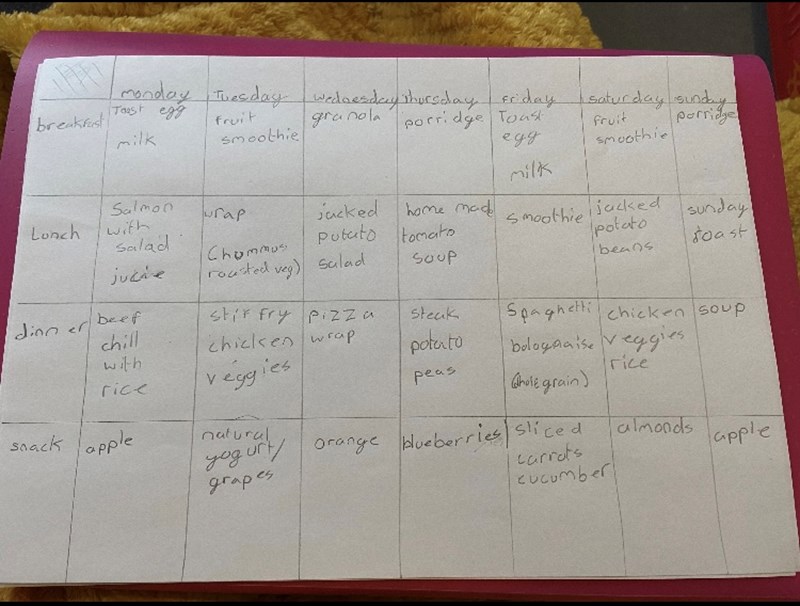 monday Tuesday Wednesday Thursday Friday saturday sunday
breakfast
Toast egg
milk
fruit
smoothie
granola
porridge
Toast
egg
milk
fruit
smoothie
porridge
Lunch
Salmon
with
salad
jucie
wrap
(hommus
roasted veg)
jacked
potato
salad
home made
tomato
soup
smoothie
jacked
potato
beans
sunday
roast
dinner
beef
chill
with
rice
stir fry
chicken
veggies
pizza
wrap
steak
potato
peas
Spaghetti
bolognaise
(hole grain)
chicken
veggies
rice
soup
snack
apple
natural
yogurt/
grapes
orange
blueberries
sliced
carrots
cucumber
almonds
apple